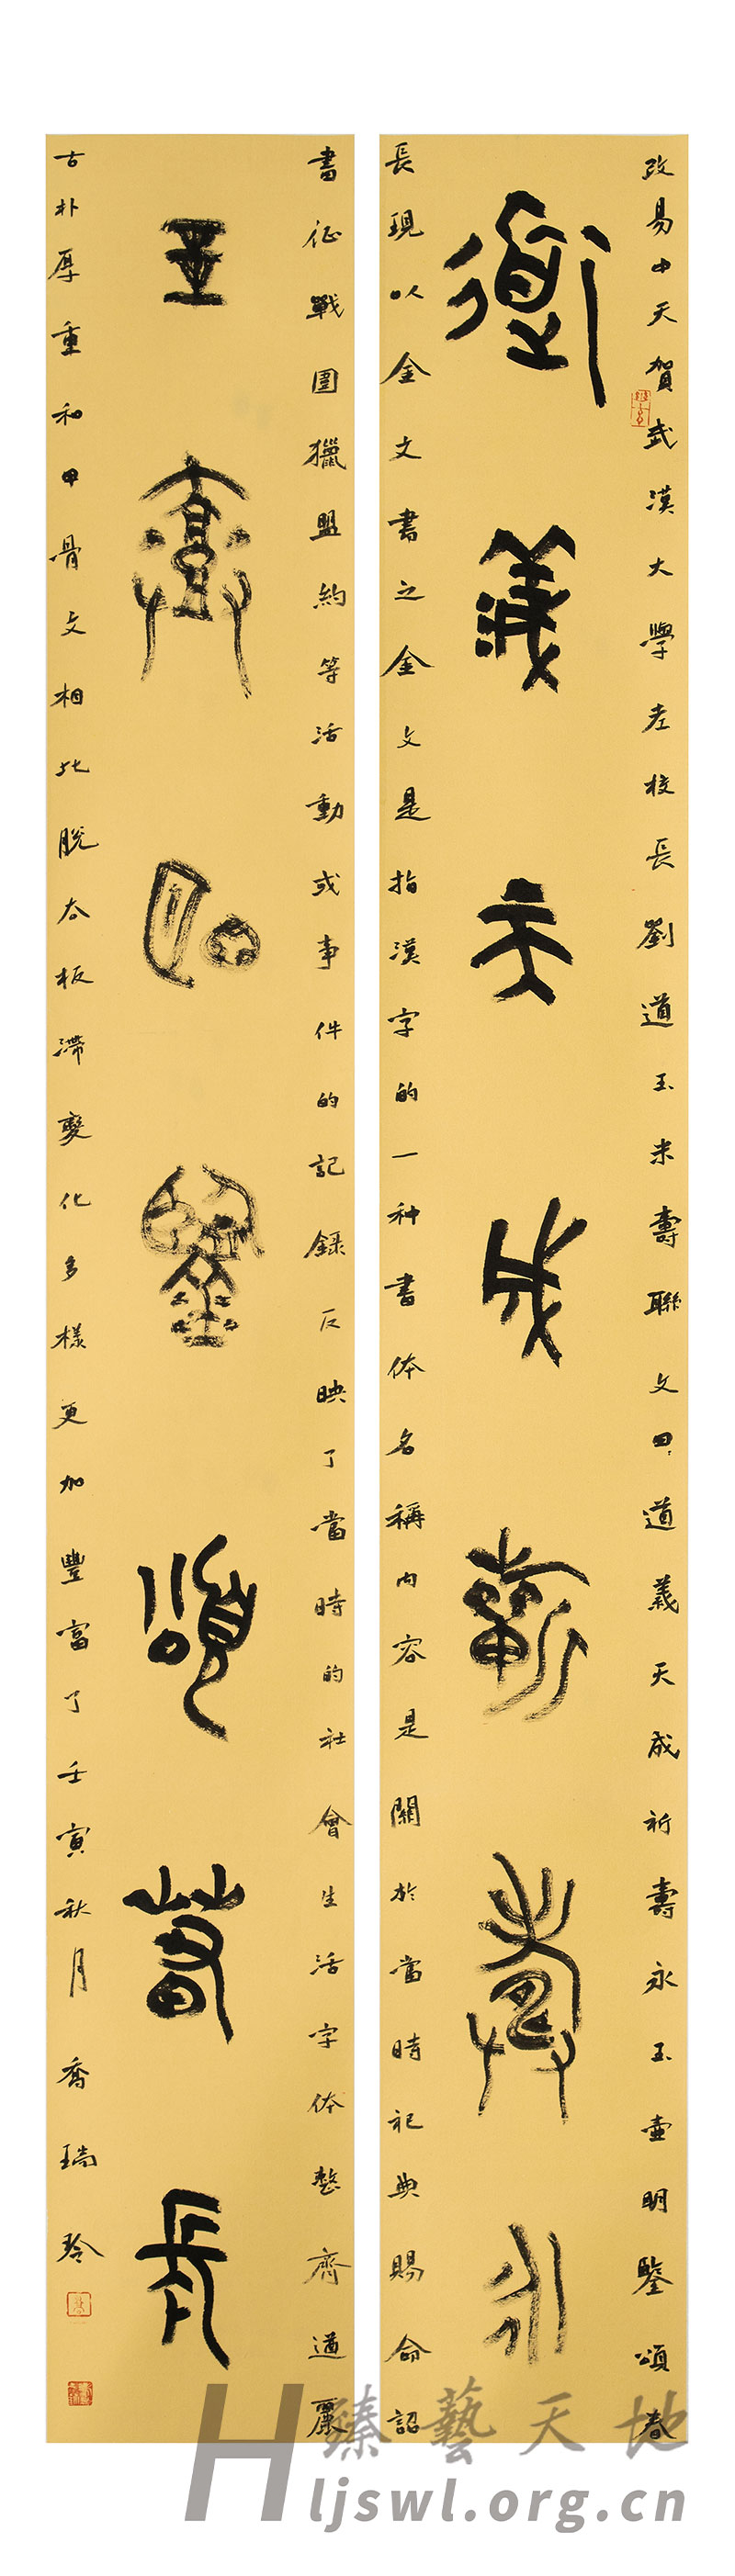 道義天成祈壽永
玉壺明鑒頌春長
改易中天賀武漢大學老校長劉道玉米壽聯文曰道義天成祈壽永玉壺明鑒頌春
長現以金文書之金文是指漢字的一种書体名稱内容是關於當時祀典賜命詔
書征戰圍獵盟約等活動或事件的記錄反映了當時的社會生活字体整齊遒麗
古朴厚重和甲骨文相比脱去板滯變化多樣更加豐富了壬寅秋月喬瑞玲
臻藝天地
Hljswl.org.cn